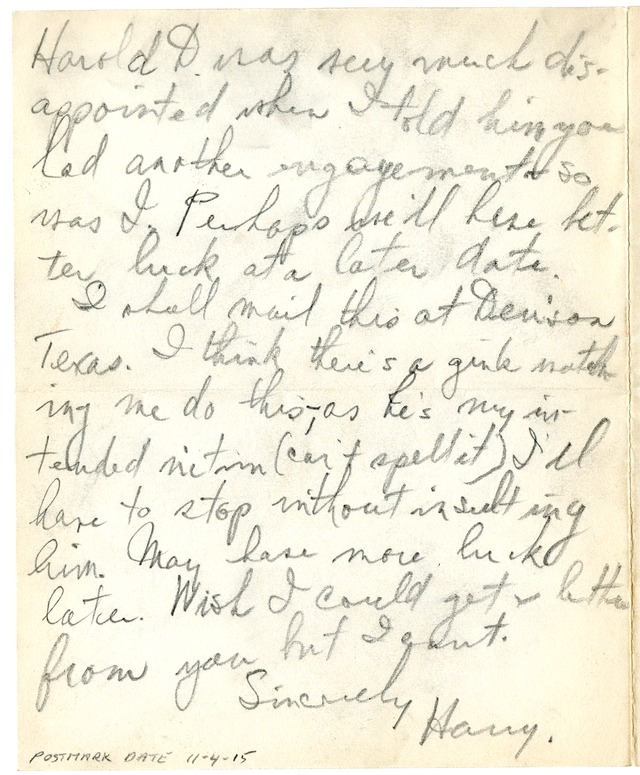 Harold D. was very much dis-
appointed when I told him you
had another engagement & so
was I. Perhaps we'll have bet-
ter luck at a later date.
I shall mail this at Denison
Texas. I think there's a gink watch-
ing me do this, as he's my in-
tended victim (can't spell it) I'll
have to stop without insulting
him. May have more luck
later. Wish I could get a letter
from you but I can't.
Sincerely
Harry.
POSTMARK DATE 11-4-15